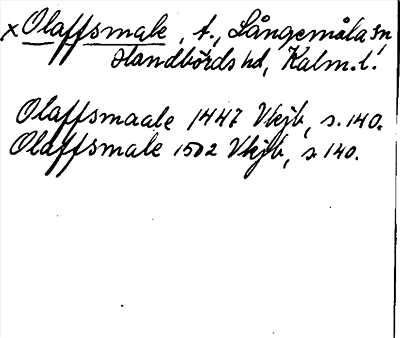 x Olaffsmale, t., Långemåla sn
Handbörds hd, Kalm. l.
Olaffsmaale 1447 Vkjb, s. 140.
Olaffsmale 1502 Vkjb, s 140.